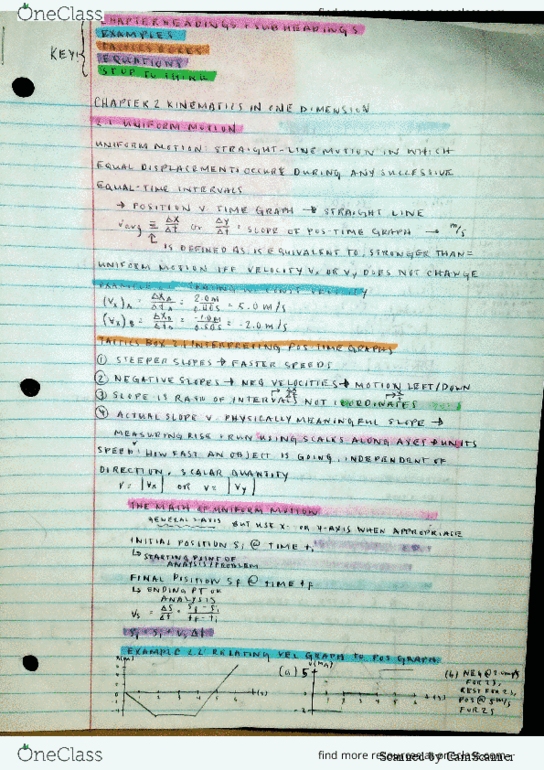 OneClass
find more resources at oneclass.com
CHAPTER HEADINGS + SUBHEADINGS
EXAMPLES
KEY: TACTICS BOXES
EQUATIONS
STOP TO THINK
CHAPTER 2 KINEMATICS IN ONE DIMENSION
2.1 UNIFORM MOTION
UNIFORM MOTION: STRAIGHT-LINE MOTION IN WHICH
EQUAL DISPLACEMENTS OCCUR DURING ANY SUCCESSIVE
EQUAL-TIME INTERVALS
→ POSITION V. TIME GRAPH → STRAIGHT LINE
Vavg ≡ Δx/Δt or Δy/Δt = SLOPE OF POS-TIME GRAPH → m/s
IS DEFINED AS, IS EQUIVALENT TO, STRONGER THAN =
UNIFORM MOTION IFF VELOCITY Vx OR Vy DOES NOT CHANGE
CONST VELOCITY
(Vx)A = ΔxA/ΔtA = 2.0m/ = 5.0 m/s
(Vx)B = ΔxB/ΔtB = -1.0m/0.50s = -2.0 m/s
TACTICS BOX 2.1 INTERPRETING POS-TIME GRAPHS
① STEEPER SLOPES → FASTER SPEEDS
② NEGATIVE SLOPES → NEG VELOCITIES → MOTION LEFT/DOWN
③ SLOPE IS RATIO OF INTERVALS NOT COORDINATES
④ ACTUAL SLOPE V. PHYSICALLY MEANINGFUL SLOPE →
MEASURING RISE + RUN USING SCALES ALONG AXES + UNITS
SPEED V: HOW FAST AN OBJECT IS GOING, INDEPENDENT OF
DIRECTION, SCALAR QUANTITY
V = |Vx| OR V = |Vy|
THE MATH OF UNIFORM MOTION
GENERAL S-AXIS BUT USE X- OR Y-AXIS WHEN APPROPRIATE
INITIAL POSITION Si @ TIME ti
↳ STARTING POINT OF
ANALYSIS/PROBLEM
FINAL POSITION Sf @ TIME tf
↳ ENDING PT OF
ANALYSIS
Vs = Δs/Δt = sf - si/tf - ti
Sf = Si + Vs Δt
EXAMPLE 2.2 RELATING VEL GRAPH TO POS GRAPH
x(m) t(s) (a) v(m/s) t(s) (b) NEG @ 2 cm/s
FOR 2 s,
REST FOR 2 s,
POS @ 5 cm/s
FOR 2 s
OneClass
find more resources at oneclass.com
Scanned by CamScanner